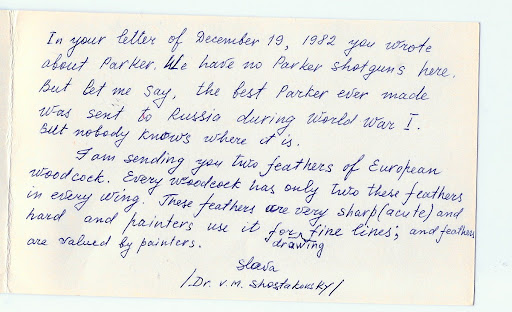 In your letter of December 19, 1982 you wrote
about Parker. We have no Parker shotguns here.
But let me say, the best Parker ever made
was sent to Russia during World War I.
But nobody knows where it is.
I am sending you two feathers of European
woodcock. Every woodcock has only two these feathers
in every wing. These feathers are very sharp (acute) and
hard and painters use it for drawing fine lines; and feathers
are valued by painters.
Slava
/Dr. V.M. Shostakovsky/